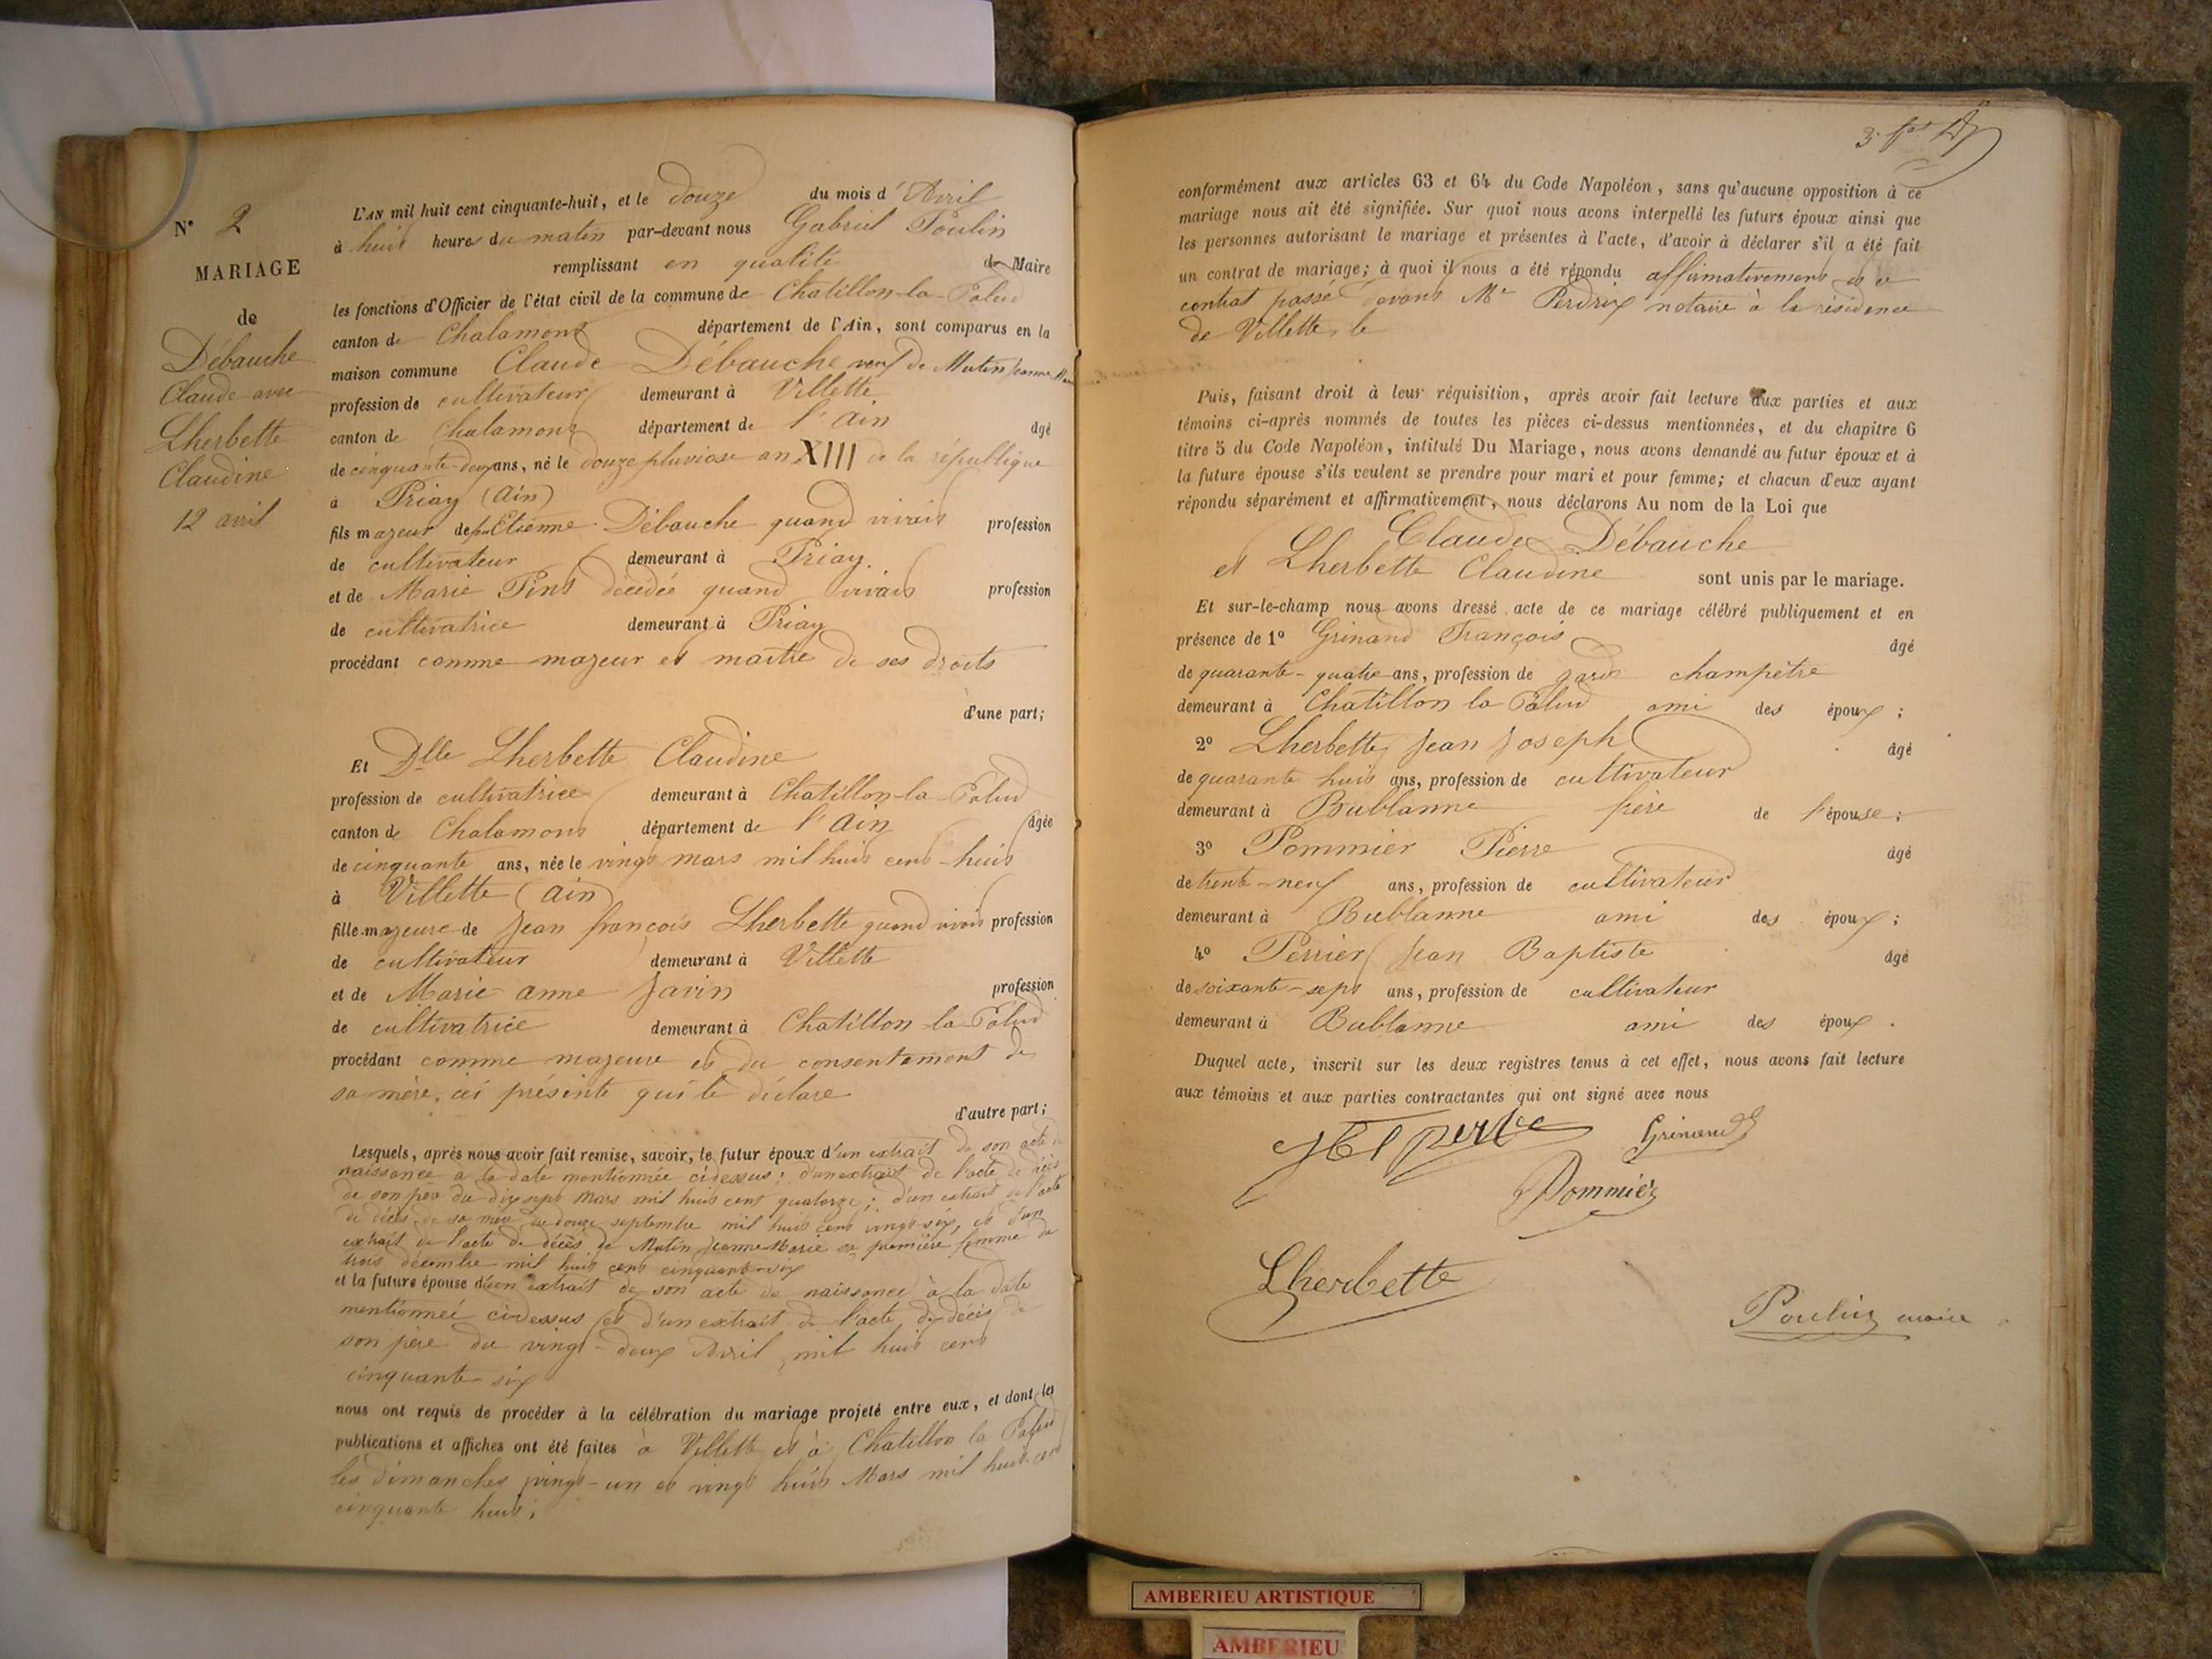 N° 2
MARIAGE
de
Débauche
Claude avec
Lherbette
Claudine
12 avril
L'AN mil huit cent cinquante-huit, et le douze du mois d'Avril
à huit heures du matin par-devant nous Gabriel Poulin
remplissant en qualité de Maire
les fonctions d'Officier de l'état civil de la commune de Chatillon-la-Palud
canton de Chalamont département de l'Ain, sont comparus en la
maison commune Claude Débauche veuf de Mutin Jeanne Marie
profession de cultivateur demeurant à Villette
canton de Chalamont département de l'Ain âgé
de cinquante-deux ans, né le douze pluviose an XIII de la république
à Priay (Ain)
fils majeur de feu Etienne Débauche quand vivait profession
de cultivateur demeurant à Priay.
et de Marie Pint décédée quand vivait profession
de cultivatrice demeurant à Priay
procédant comme majeur et maitre de ses droits
d'une part;
Et Dlle Lherbette Claudine
profession de cultivatrice demeurant à Chatillon-la-Palud
canton de Chalamont département de l'Ain âgée
de cinquante ans, née le vingt mars mil huit cent huit
à Villette (Ain)
fille majeure de Jean françois Lherbette quand vivait profession
de cultivateur demeurant à Villette
et de Marie anne Javin profession
de cultivatrice demeurant à Chatillon-la-Palud
procédant comme majeure et du consentement de
sa mère, ici présente qui le déclare
d'autre part;
Lesquels, après nous avoir fait remise, savoir, le futur époux d'un extrait de son acte de
naissance a la date mentionnée cidessus; d'un extrait de l'acte de décès
de son père du dix sept Mars mil huit cent quatorze; d'un extrait de l'acte
de décès de sa mère du douze septembre mil huit cent vingt-six, et d'un
extrait de l'acte de décès de Mutin Jeanne Marie sa première femme du
trois décembre mil huit cent cinquante-six
et la future épouse d'un extrait de son acte de naissance à la date
mentionnée cidessus et d'un extrait de l'acte de décès de
son père du vingt-deux Avril mil huit cent
cinquante-six
nous ont requis de procéder à la célébration du mariage projeté entre eux, et dont les
publications et affiches ont été faites à Villette et à Chatillon la Palud
les dimanches vingt-un et vingt huit Mars mil huit cent
cinquante huit;
conformément aux articles 63 et 64 du Code Napoléon, sans qu'aucune opposition à ce
mariage nous ait été signifiée. Sur quoi nous avons interpellé les futurs époux ainsi que
les personnes autorisant le mariage et présentes à l'acte, d'avoir à déclarer s'il a été fait
un contrat de mariage; à quoi il nous a été répondu affirmativement et ce
contrat passé devant Me Perdrix notaire à la résidence
de Villette, le
Puis, faisant droit à leur réquisition, après avoir fait lecture aux parties et aux
témoins ci-après nommés de toutes les pièces ci-dessus mentionnées, et du chapitre 6
titre 5 du Code Napoléon, intitulé Du Mariage, nous avons demandé au futur époux et à
la future épouse s'ils veulent se prendre pour mari et pour femme; et chacun d'eux ayant
répondu séparément et affirmativement, nous déclarons Au nom de la Loi que
Claude Débauche
et Lherbette Claudine sont unis par le mariage.
Et sur-le-champ nous avons dressé acte de ce mariage célébré publiquement et en
présence de 1° Grinand François âgé
de quarante-quatre ans, profession de garde champêtre
demeurant à Chatillon la Palud ami des époux;
2° Lherbette Jean Joseph âgé
de quarante huit ans, profession de cultivateur
demeurant à Bublanne frère de l'épouse;
3° Pommier Pierre âgé
de trente-neuf ans, profession de cultivateur
demeurant à Bublanne ami des époux;
4° Perrier Jean Baptiste âgé
de soixante-sept ans, profession de cultivateur
demeurant à Bublanne ami des époux.
Duquel acte, inscrit sur les deux registres tenus à cet effet, nous avons fait lecture
aux témoins et aux parties contractantes qui ont signé avec nous
Grinand
Pommier
Lherbette
Poulin maire
AMBERIEU ARTISTIQUE
AMBERIEU